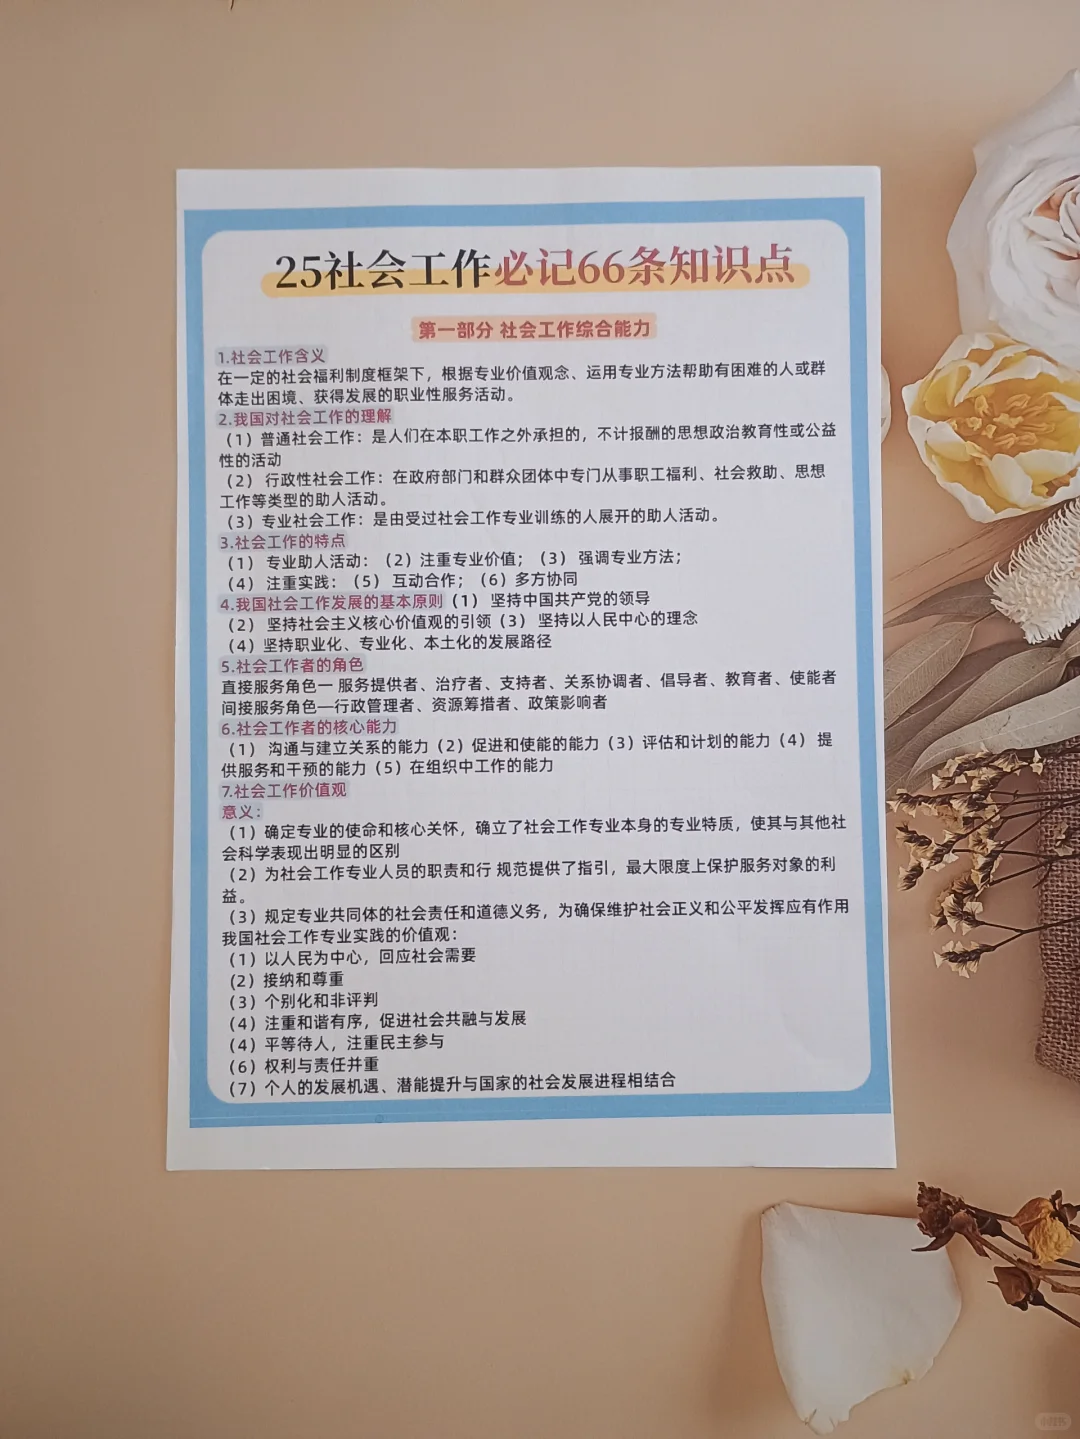 25社会工作必记66条知识点
第一部分 社会工作综合能力
1.社会工作含义
在一定的社会福利制度框架下，根据专业价值观念、运用专业方法帮助有困难的人或群
体走出困境、获得发展的职业性服务活动。
2.我国对社会工作的理解
（1）普通社会工作：是人们在本职工作之外承担的，不计报酬的思想政治教育性或公益
性的活动
（2） 行政性社会工作：在政府部门和群众团体中专门从事职工福利、社会救助、思想
工作等类型的助人活动。
（3）专业社会工作：是由受过社会工作专业训练的人展开的助人活动。
3.社会工作的特点
（1） 专业助人活动：（2）注重专业价值；（3） 强调专业方法；
（4） 注重实践：（5） 互动合作；（6）多方协同
4.我国社会工作发展的基本原则（1） 坚持中国共产党的领导
（2） 坚持社会主义核心价值观的引领（3） 坚持以人民中心的理念
（4）坚持职业化、专业化、本土化的发展路径
5.社会工作者的角色
直接服务角色一 服务提供者、治疗者、支持者、关系协调者、倡导者、教育者、使能者
间接服务角色—行政管理者、资源筹措者、政策影响者
6.社会工作者的核心能力
（1） 沟通与建立关系的能力（2）促进和使能的能力（3）评估和计划的能力（4） 提
供服务和干预的能力（5）在组织中工作的能力
7.社会工作价值观
意义：
（1）确定专业的使命和核心关怀，确立了社会工作专业本身的专业特质，使其与其他社
会科学表现出明显的区别
（2）为社会工作专业人员的职责和行 规范提供了指引，最大限度上保护服务对象的利
益。
（3）规定专业共同体的社会责任和道德义务，为确保维护社会正义和公平发挥应有作用
我国社会工作专业实践的价值观：
（1）以人民为中心，回应社会需要
（2）接纳和尊重
（3）个别化和非评判
（4）注重和谐有序，促进社会共融与发展
（4）平等待人，注重民主参与
（6）权利与责任并重
（7）个人的发展机遇、潜能提升与国家的社会发展进程相结合
小红书